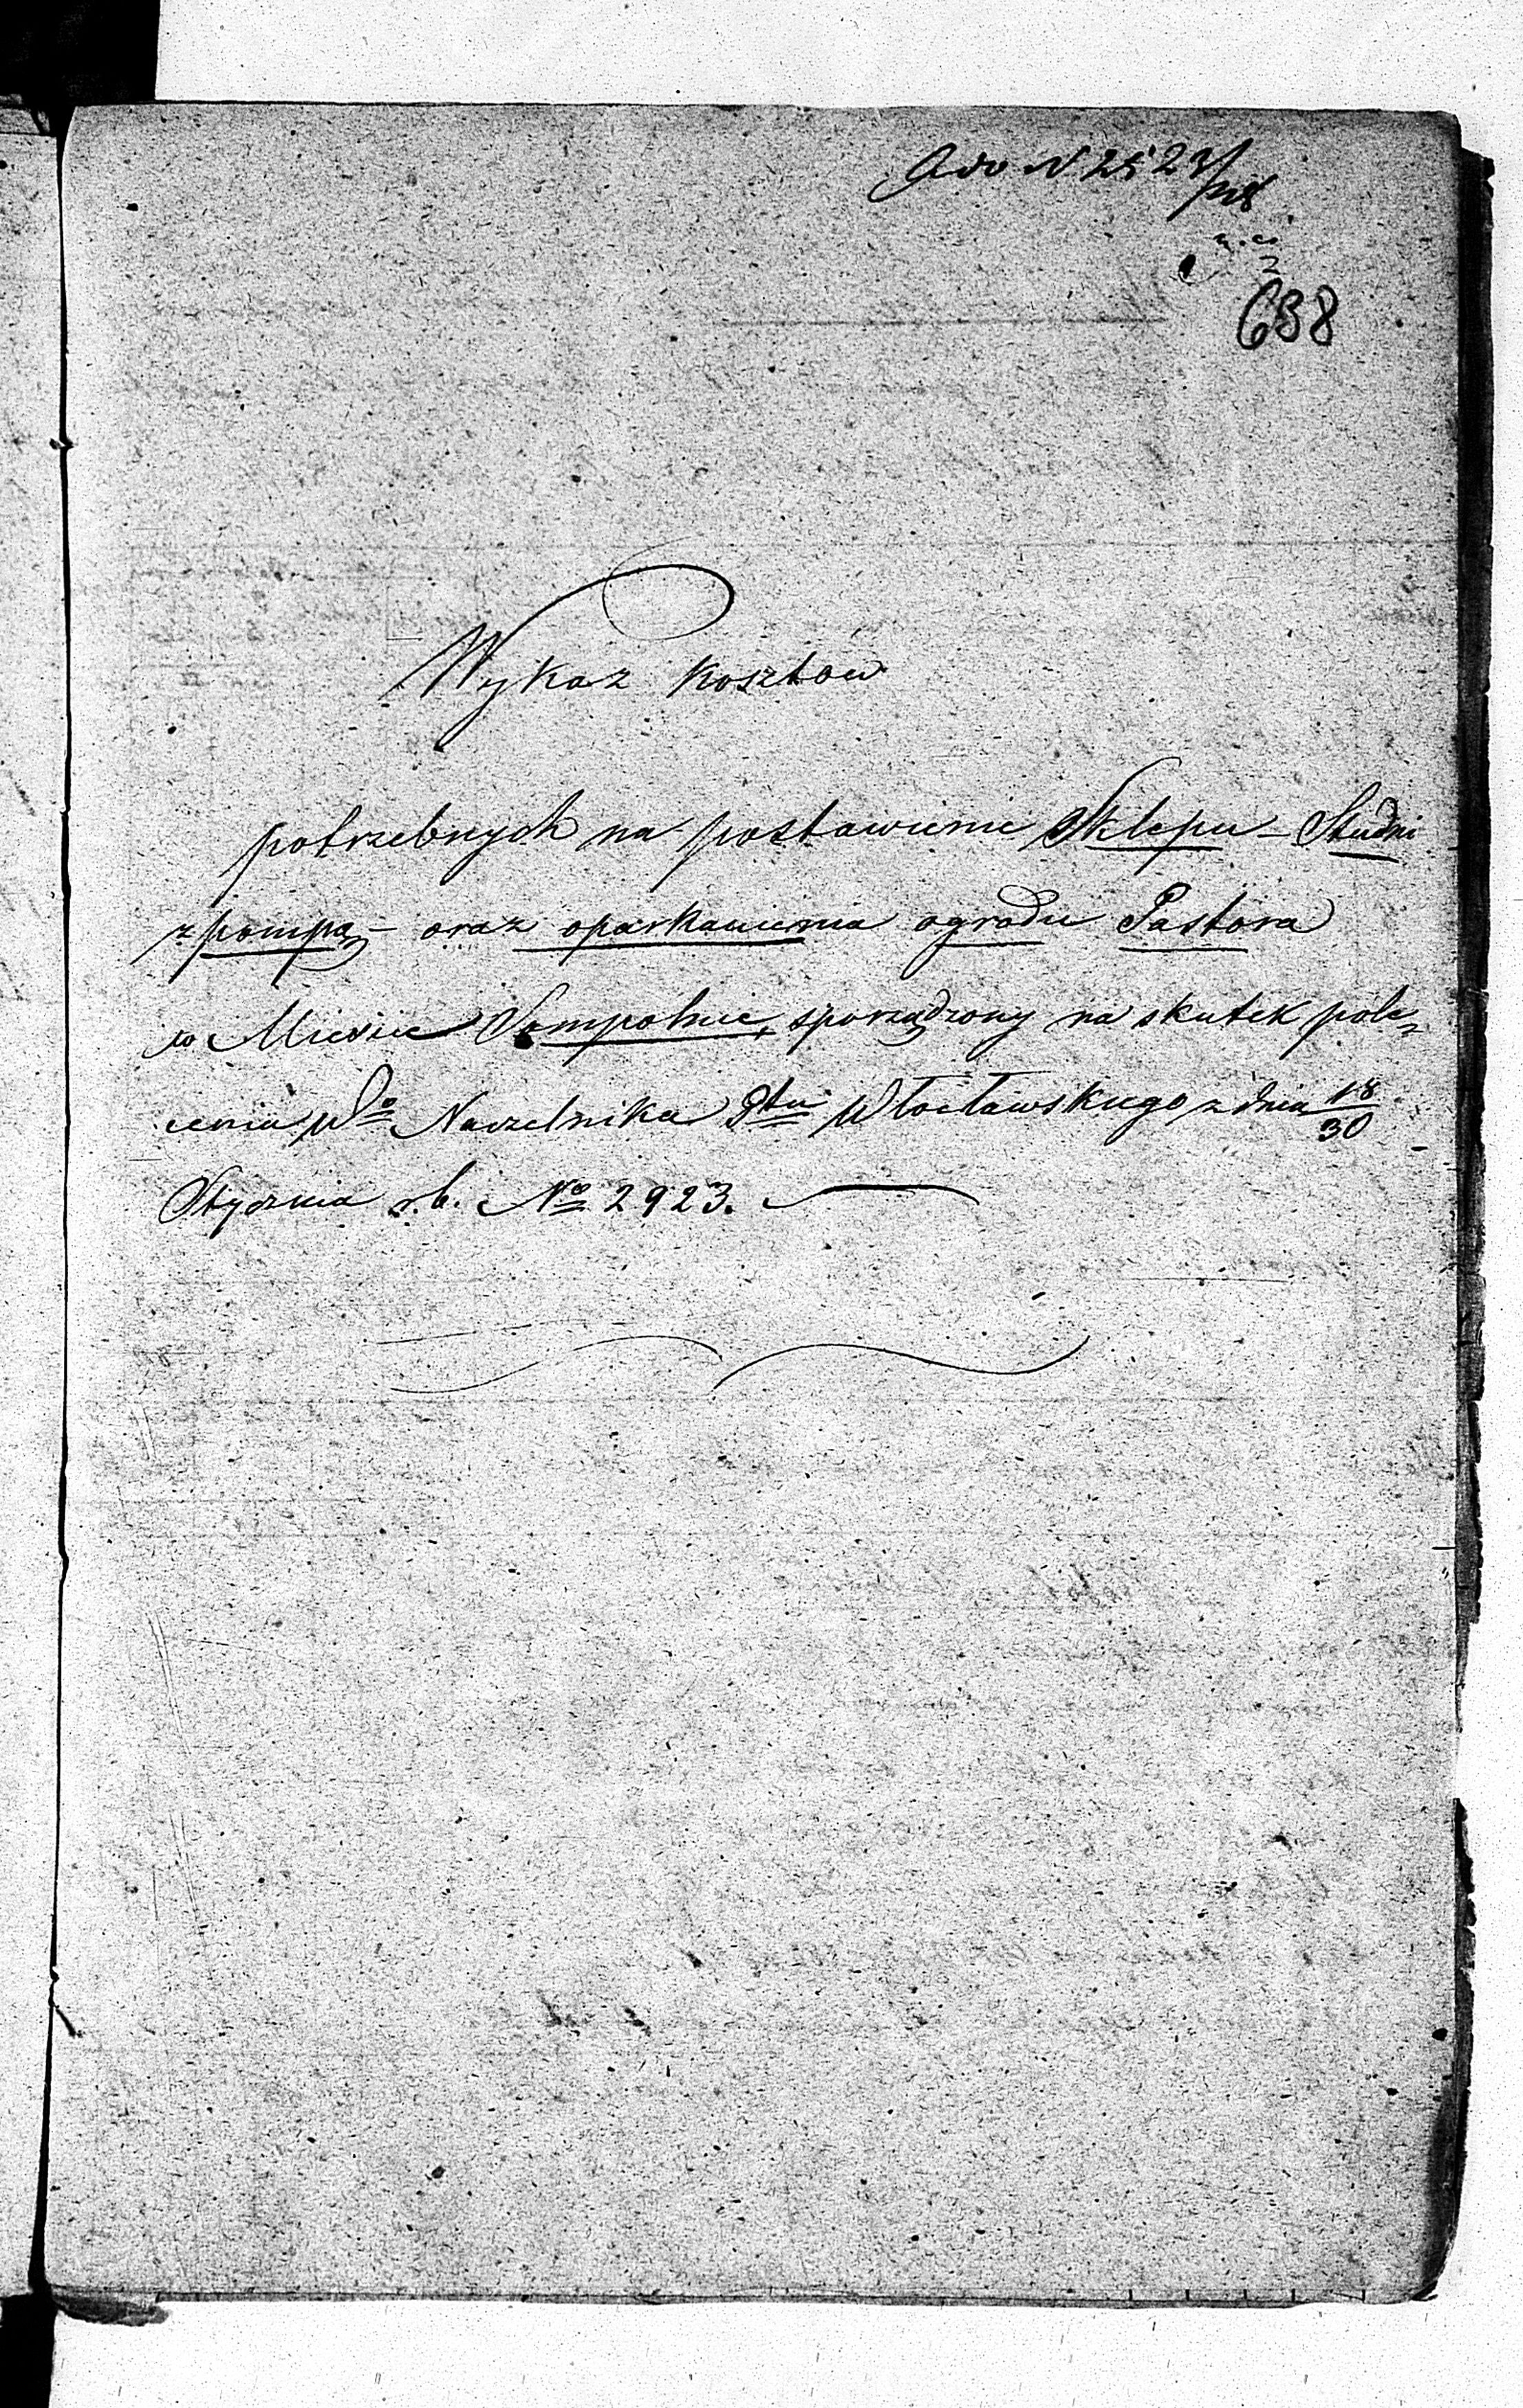 Ad N 2523/
638
Wykaz kosztów
potrzebnych na postawienie Sklepu – Studni
z pompą – oraz oparkanienia ogrodu Pastora
w Mieście Sompolnie, sporządzony na skutek pole-
cenia Wo Naczelnika Ptu Włocławskiego z dnia 18/30
Stycznia r.b. No 2923.